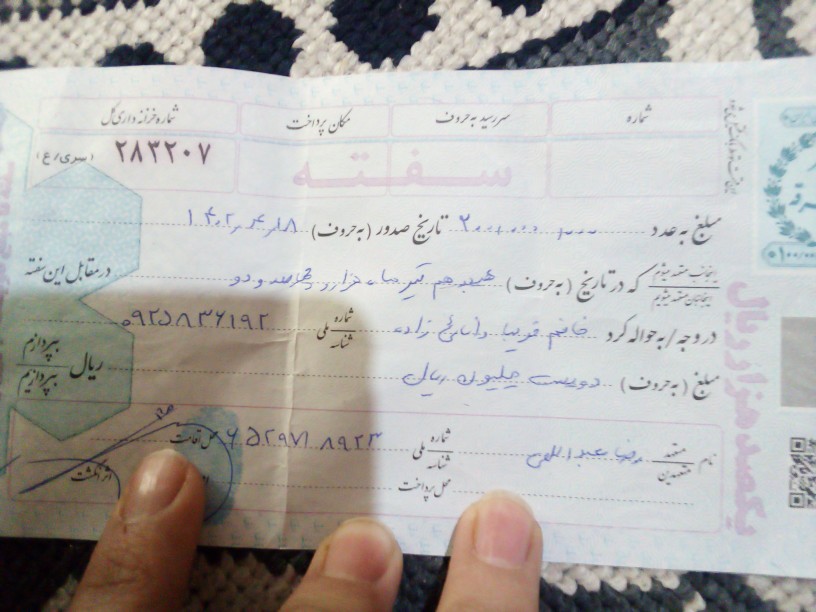 شماره سررسید به حروف مکان پرداخت شماره خزانه داری کل
۲۸۳۲۰۷ (سری/ع)
سفته
مبلغ به عدد ۲۰۰,۰۰۰,۰۰۰ تاریخ صدور (به حروف) ۱۴۰۲,۴,۱۸
اینجانب متعهد میشوم
اینجانبان متعهد میشویم
که در تاریخ (به حروف) هجدهم تیر ماه هزار و چهارصد و دو در مقابل این سفته
در وجه / به حواله کرد خانم فریبا دانائی زاده شماره شناسه ملی ۰۹۲۵۸۳۶۱۹۲
مبلغ (به حروف) دویست میلیون ریال ریال بپردازم بپردازیم
نام متعهد متعهدین رضا عبداللهی شماره شناسه ملی ۶۵۲۹۷۱۸۹۲۳ محل اقامت
محل پرداخت اثر انگشت
یکصد هزار ریال